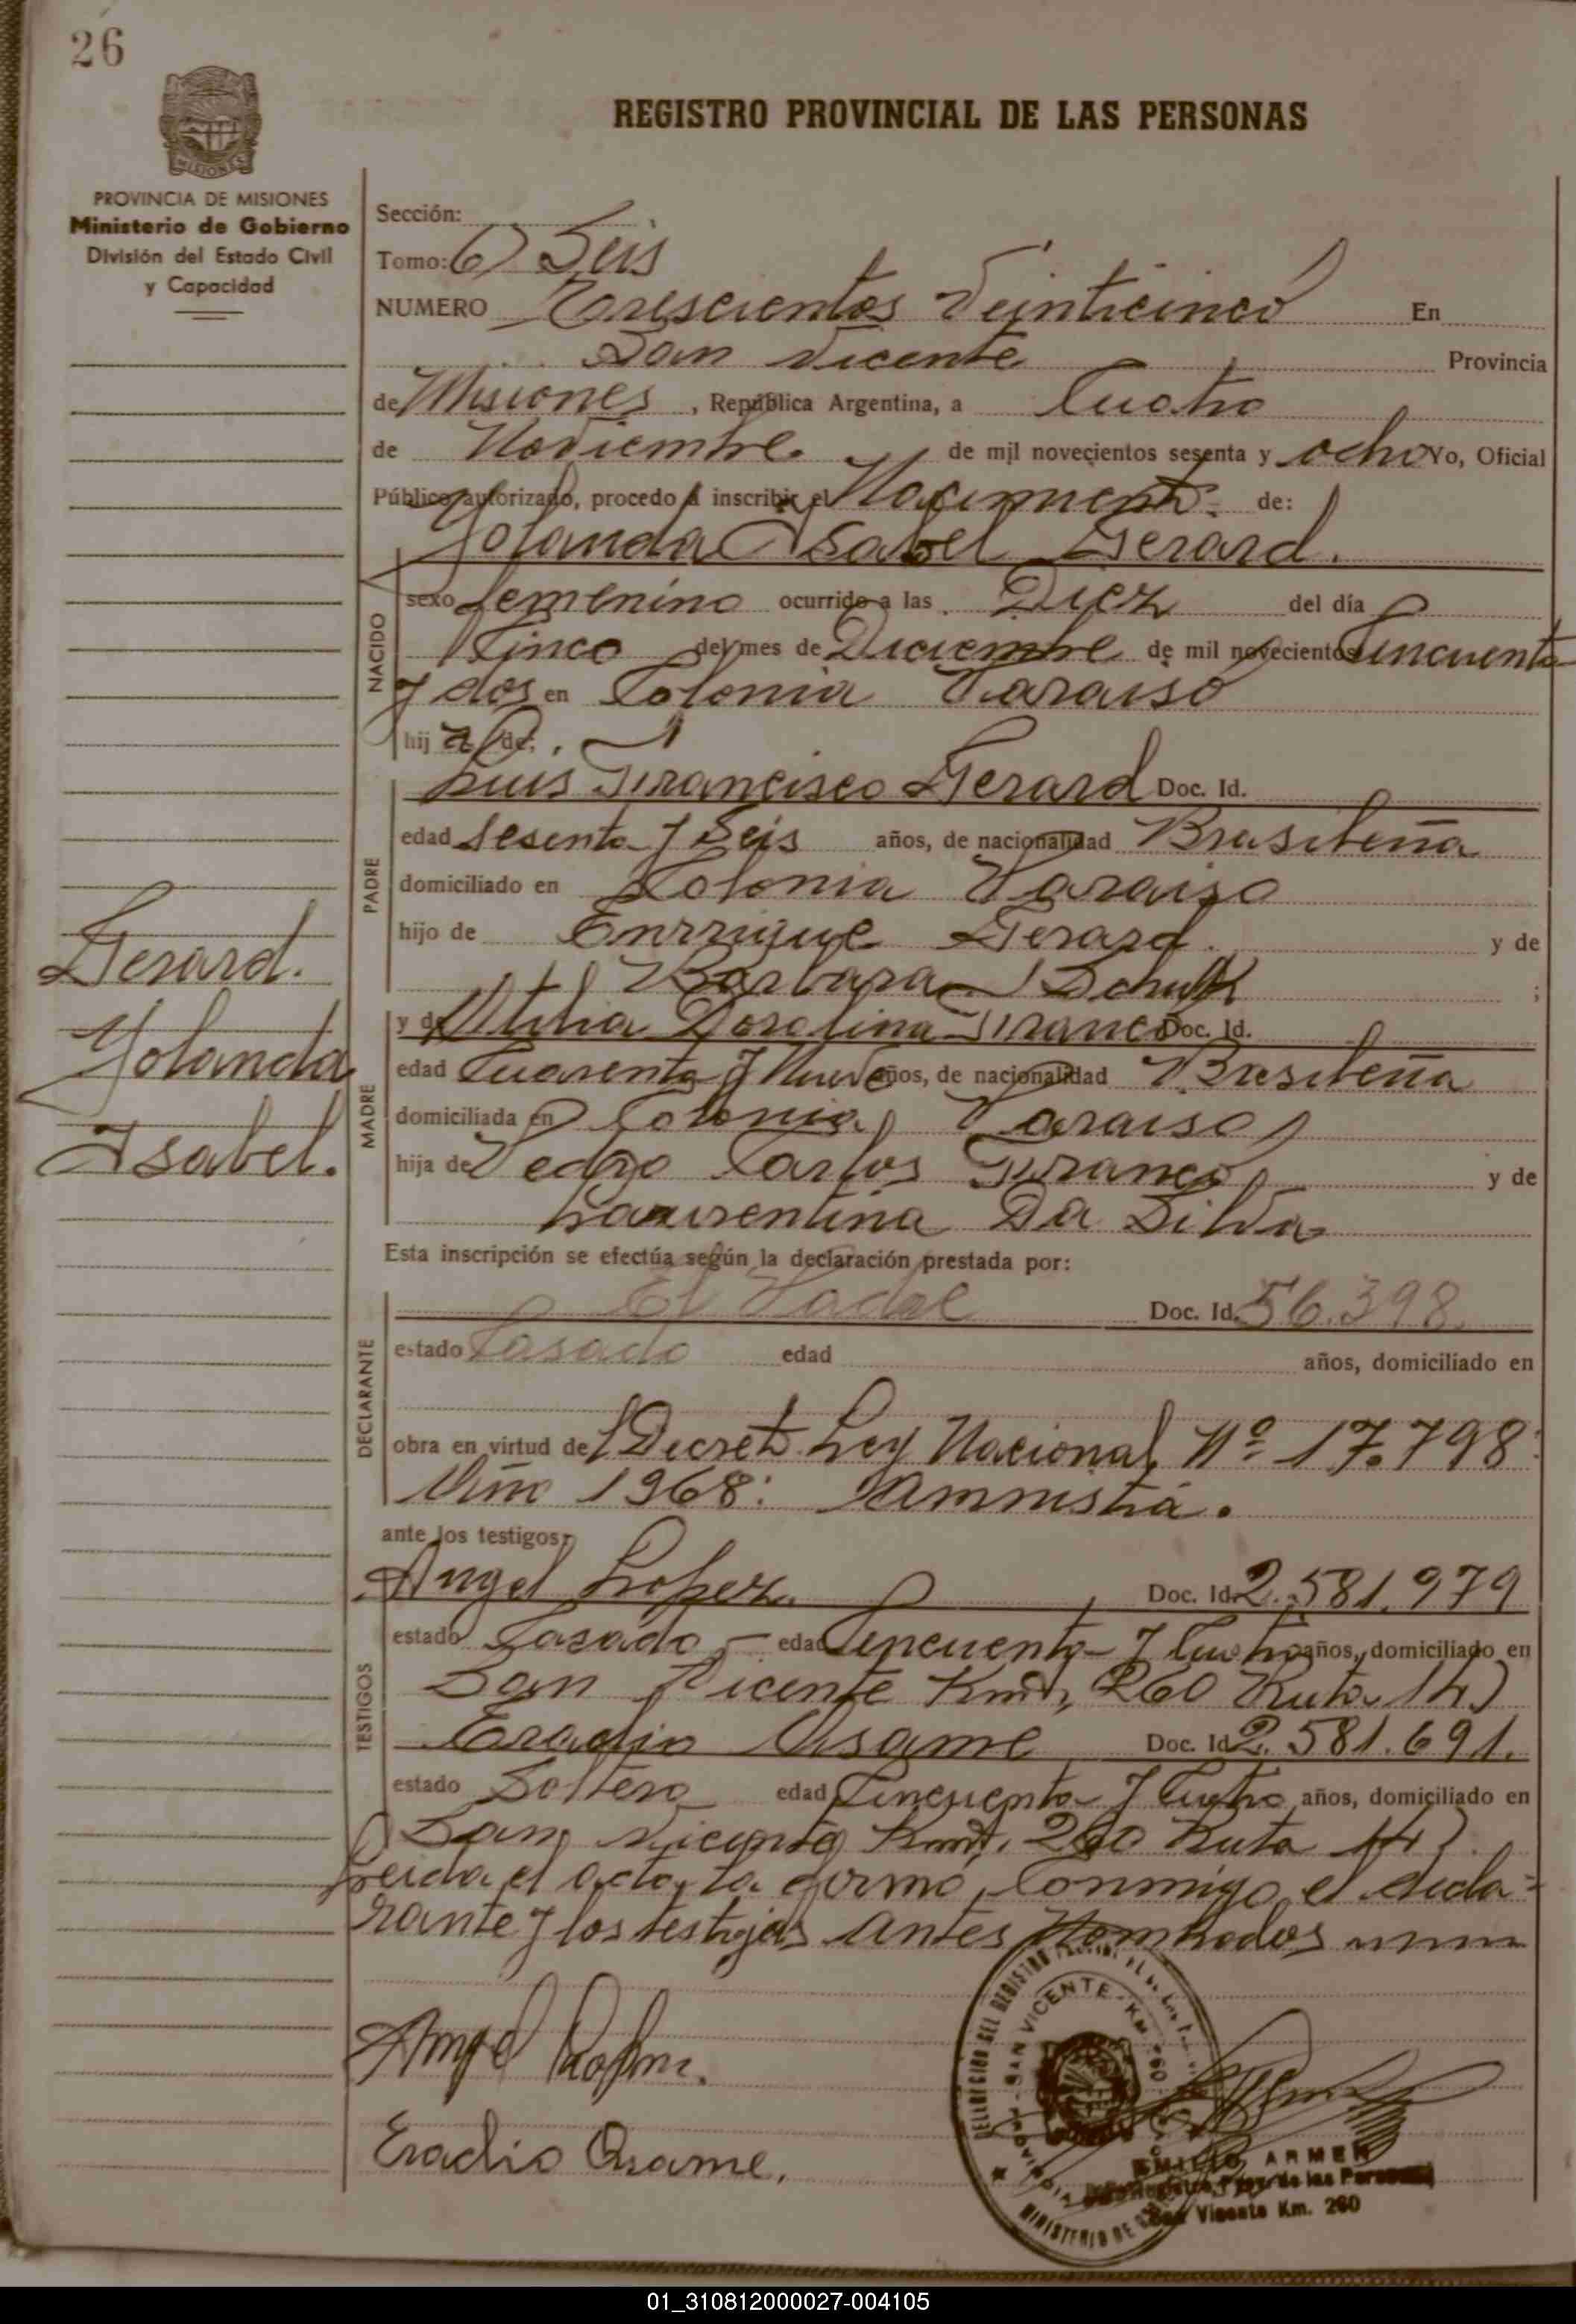 26
REGISTRO PROVINCIAL DE LAS PERSONAS
MISIONES
PROVINCIA DE MISIONES
Ministerio de Gobierno
División del Estado Civil
y Capacidad
Sección:
Tomo: 6) Seis
NUMERO Trescientos Veinticinco En
San Vicente Provincia
de Misiones, República Argentina, a Cuatro
de Noviembre de mil novecientos sesenta y ocho Yo, Oficial
Público autorizado, procedo a inscribir el Nacimiento de:
Yolanda Isabel Gerard.
NACIDO
sexo femenino ocurrido a las Diez del día
Cinco del mes de Diciembre de mil novecientos Cincuenta
y dos en Colonia Paraiso
hij a de:
PADRE
Luis Francisco Gerard Doc. Id.
edad Sesenta y Seis años, de nacionalidad Brasileña
domiciliado en Colonia Paraiso
hijo de Enrrique Gerard. y de
Barbara Schulz ;
MADRE
y de Dorolina Franco Doc. Id.
edad Cuarenta y Nueve años, de nacionalidad Brasileña
domiciliada en Colonia Paraiso
hija de Pedro Carlos Franco y de
Laurentina Da Silva
Gerard.
Yolanda
Isabel.
Esta inscripción se efectúa según la declaración prestada por:
DECLARANTE
El Padre Doc. Id. 56.398.
estado Casado edad años, domiciliado en
obra en virtud del Decreto Ley Nacional Nº 17.798:
Año 1968: Amnistia.
ante los testigos:
TESTIGOS
Angel Lopez. Doc. Id. 2.581.979
estado Casado edad Cincuenta y Cuatro años, domiciliado en
San Vicente Kmt. 260 Ruta 14)
Eradio Asame Doc. Id. 2.581.691.
estado Soltero edad Cincuenta y Cuatro años, domiciliado en
San Vicente Kmt. 260 Ruta 14)
Leida el acta, la firmó, Conmigo, el decla-
rante y los testigos antes Nombrados
Angel
Eradio Asame.
DELEGACION DEL REGISTRO
SAN VICENTE - KM. 260
PROVINCIA
MINISTERIO DE
EMILIO ARMEN
de las Personas
San Vicente Km. 260
01_310812000027-004105